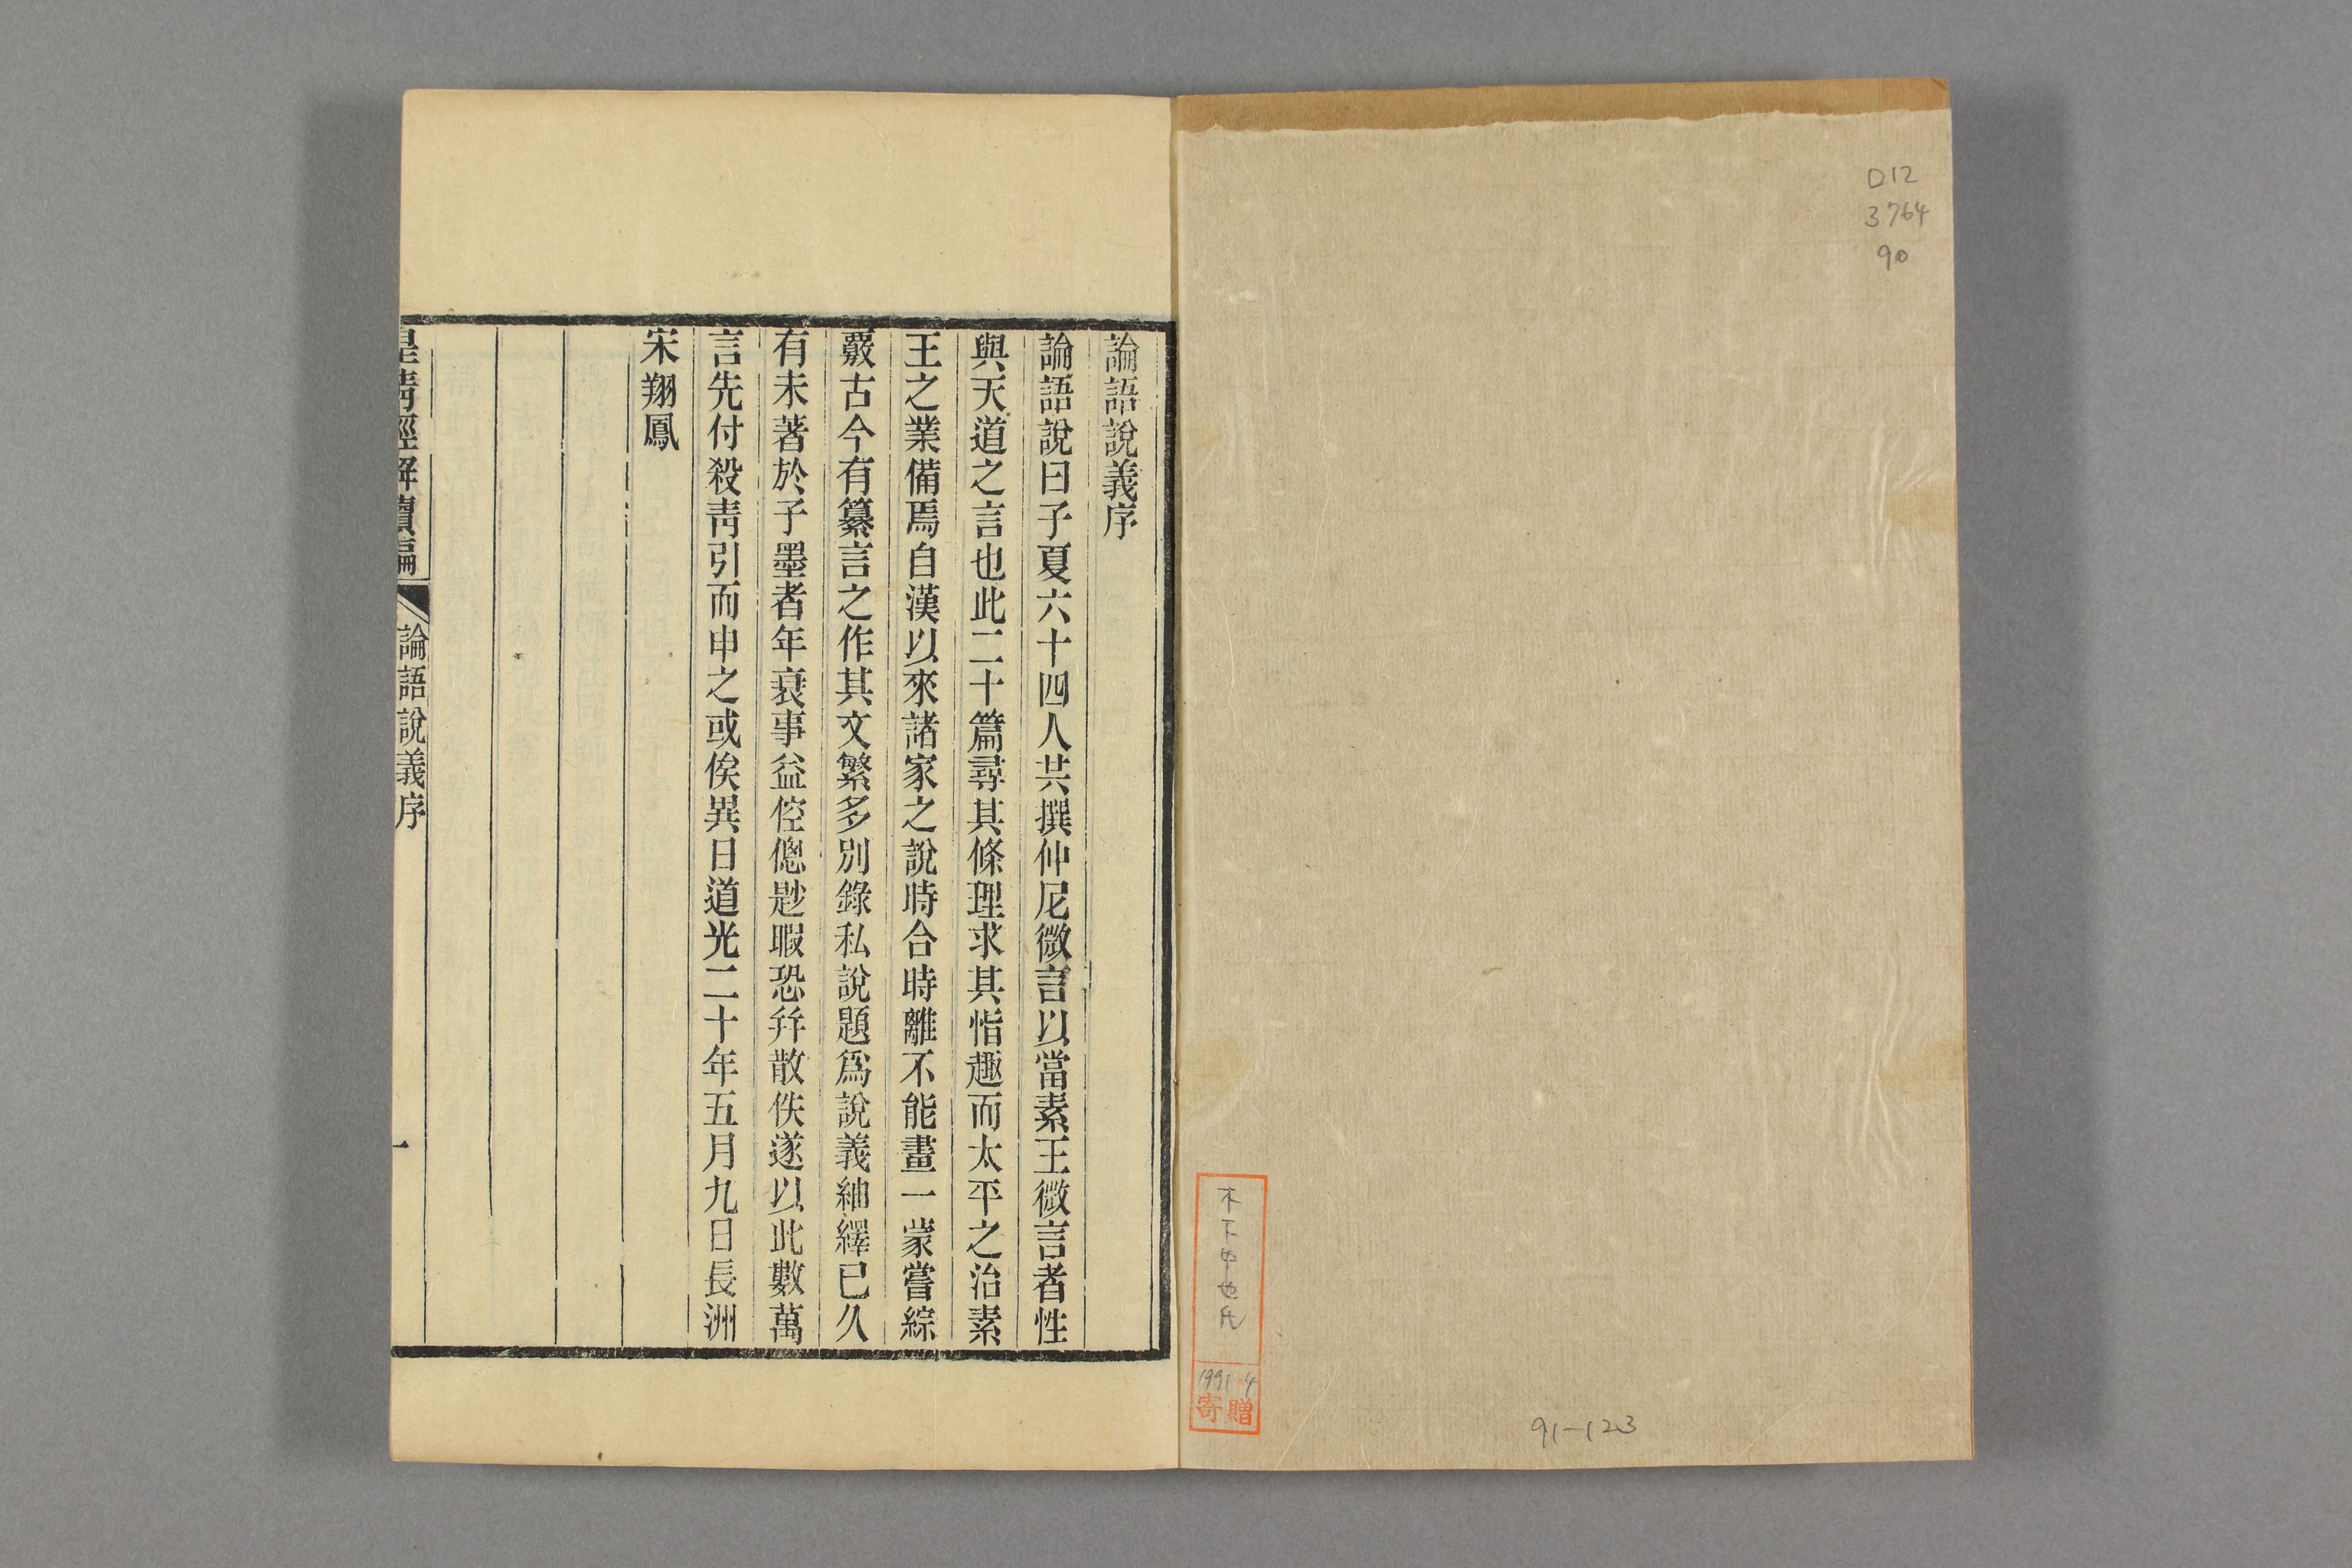 D12
3764
90
木下中也氏
1991.4
寄贈
91-123
論語說義序
論語說曰子夏六十四人共撰仲尼微言以當素王微言者性
與天道之言也此二十篇尋其條理求其恉趣而太平之治素
王之業備焉自漢以來諸家之說時合時離不能畫一蒙嘗綜
覈古今有纂言之作其文繁多別錄私說題爲說義紬繹已久
有未著於子墨者年衰事益倥傯尟暇恐幷散佚遂以此數萬
言先付殺靑引而申之或俟異日道光二十年五月九日長洲
宋翔鳳
皇淸經解續編
論語說義序
一